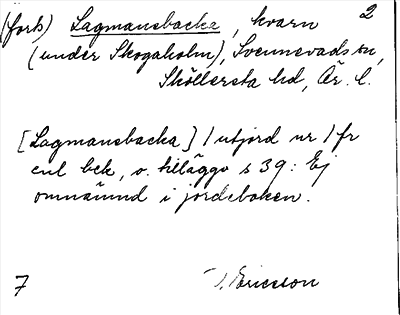 (forts) Lagmansbacka, kvarn 2
(under Skogaholm), Svennevads sn,
Sköllersta hd, Ör. l.
[Lagmansbacka] 1 utjord nr 1 fr
enl bek, o. tillägg s 39: Ej
omnämnd i jordeboken.
7 J. Ericsson